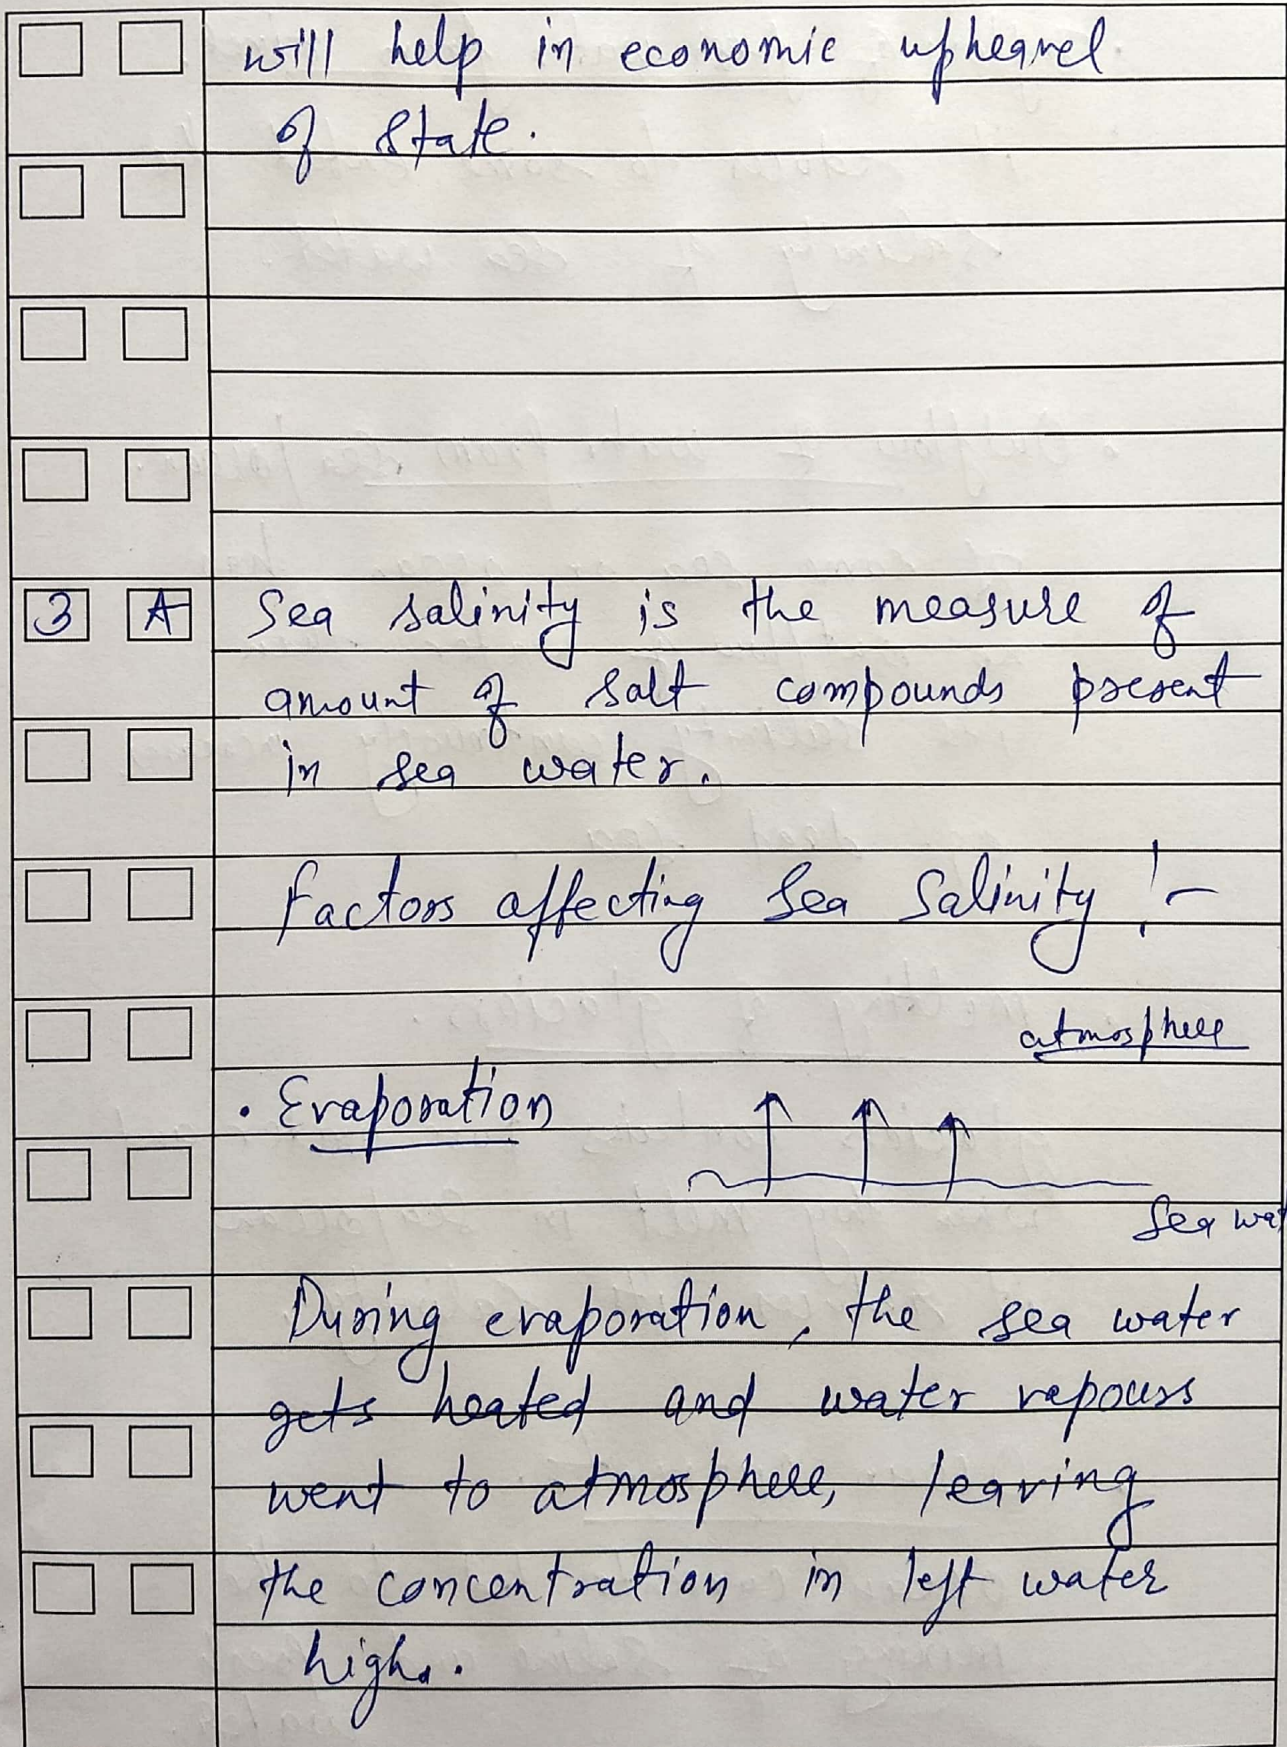 will help in economic upheavel
of state.
3 A Sea salinity is the measure of
amount of salt compounds present
in sea water.
factors affecting Sea Salinity :-
atmosphere
• Evaporation
Sea wat
During evaporation, the sea water
gets heated and water vapours
went to atmosphere, leaving
the concentration in left water
high.